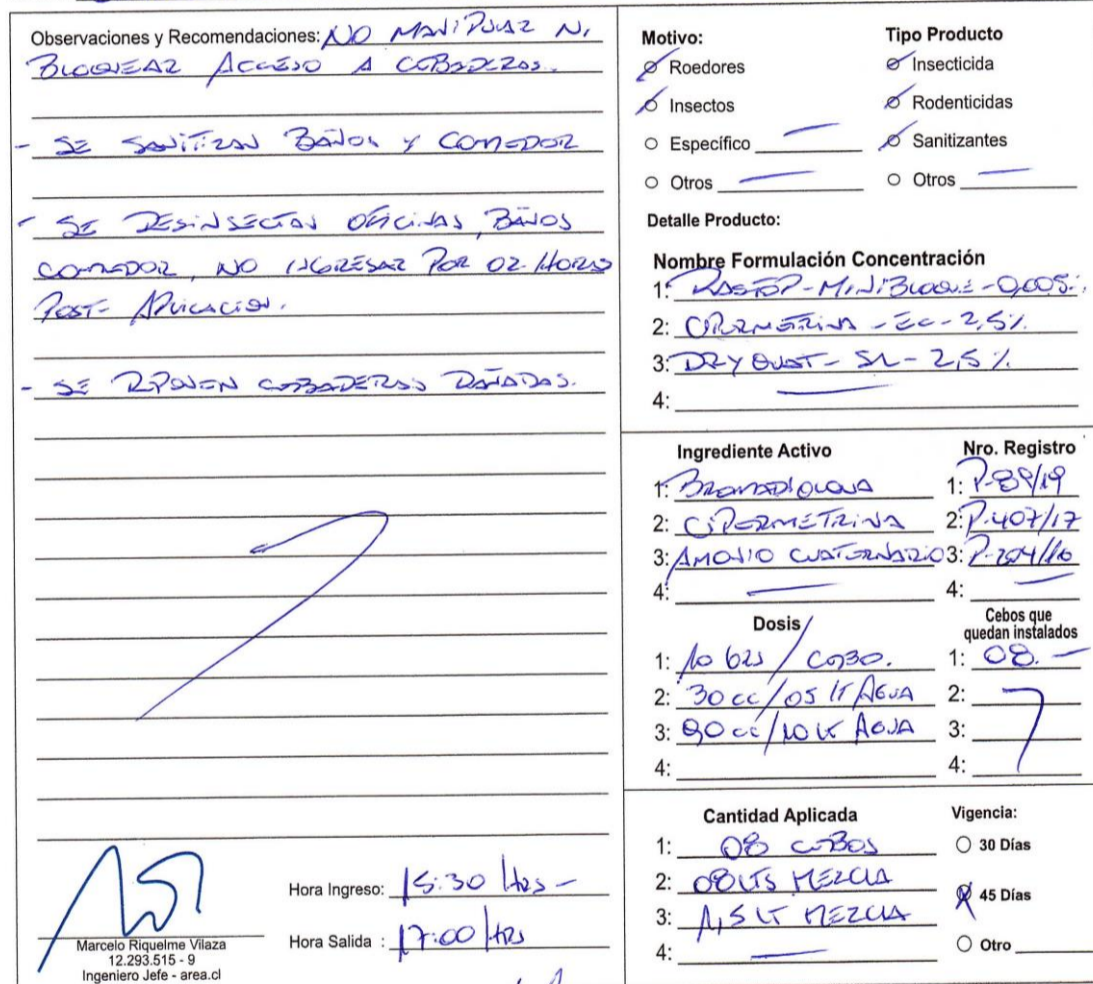 Observaciones y Recomendaciones: NO MANIPULAR NI
BLOQUEAR ACCESO A CEBADERAS.
- SE SANITIZAN BAÑOS Y COMEDOR
- SE DESINSECTAN OFICINAS, BAÑOS
COMEDOR, NO INGRESAR POR 02 HORAS
POST- APLICACION.
- SE REPONEN CEBADERAS DAÑADAS.
Marcelo Riquelme Vilaza
12.293.515 - 9
Ingeniero Jefe - area.cl
Hora Ingreso: 15:30 Hrs -
Hora Salida : 17:00 Hrs
Motivo:
Roedores
Insectos
Específico
Otros
Tipo Producto
Insecticida
Rodenticidas
Sanitizantes
Otros
Detalle Producto:
Nombre Formulación Concentración
1: RASTOP - MINIBLOQUE - 0,005%
2: CIPERMETRINA - EC - 2,5%
3: DRY QUAT - SL - 2,5%
4:
Ingrediente Activo
1: BROMADIOLONA
2: CIPERMETRINA
3: AMONIO CUATERNARIO
4:
Nro. Registro
1: P-89/19
2: P-407/17
3:
4:
Dosis
1: 10 / CEBO.
2: 30 cc/05 LT AGUA
3: 90 cc/10 LT AGUA
4:
Cebos que
quedan instalados
1: 08.-
2:
3:
4:
Cantidad Aplicada
1: 08 CEBOS
2: 08 LTS MEZCLA
3: 1,5 LT MEZCLA
4:
Vigencia:
30 Días
45 Días
Otro